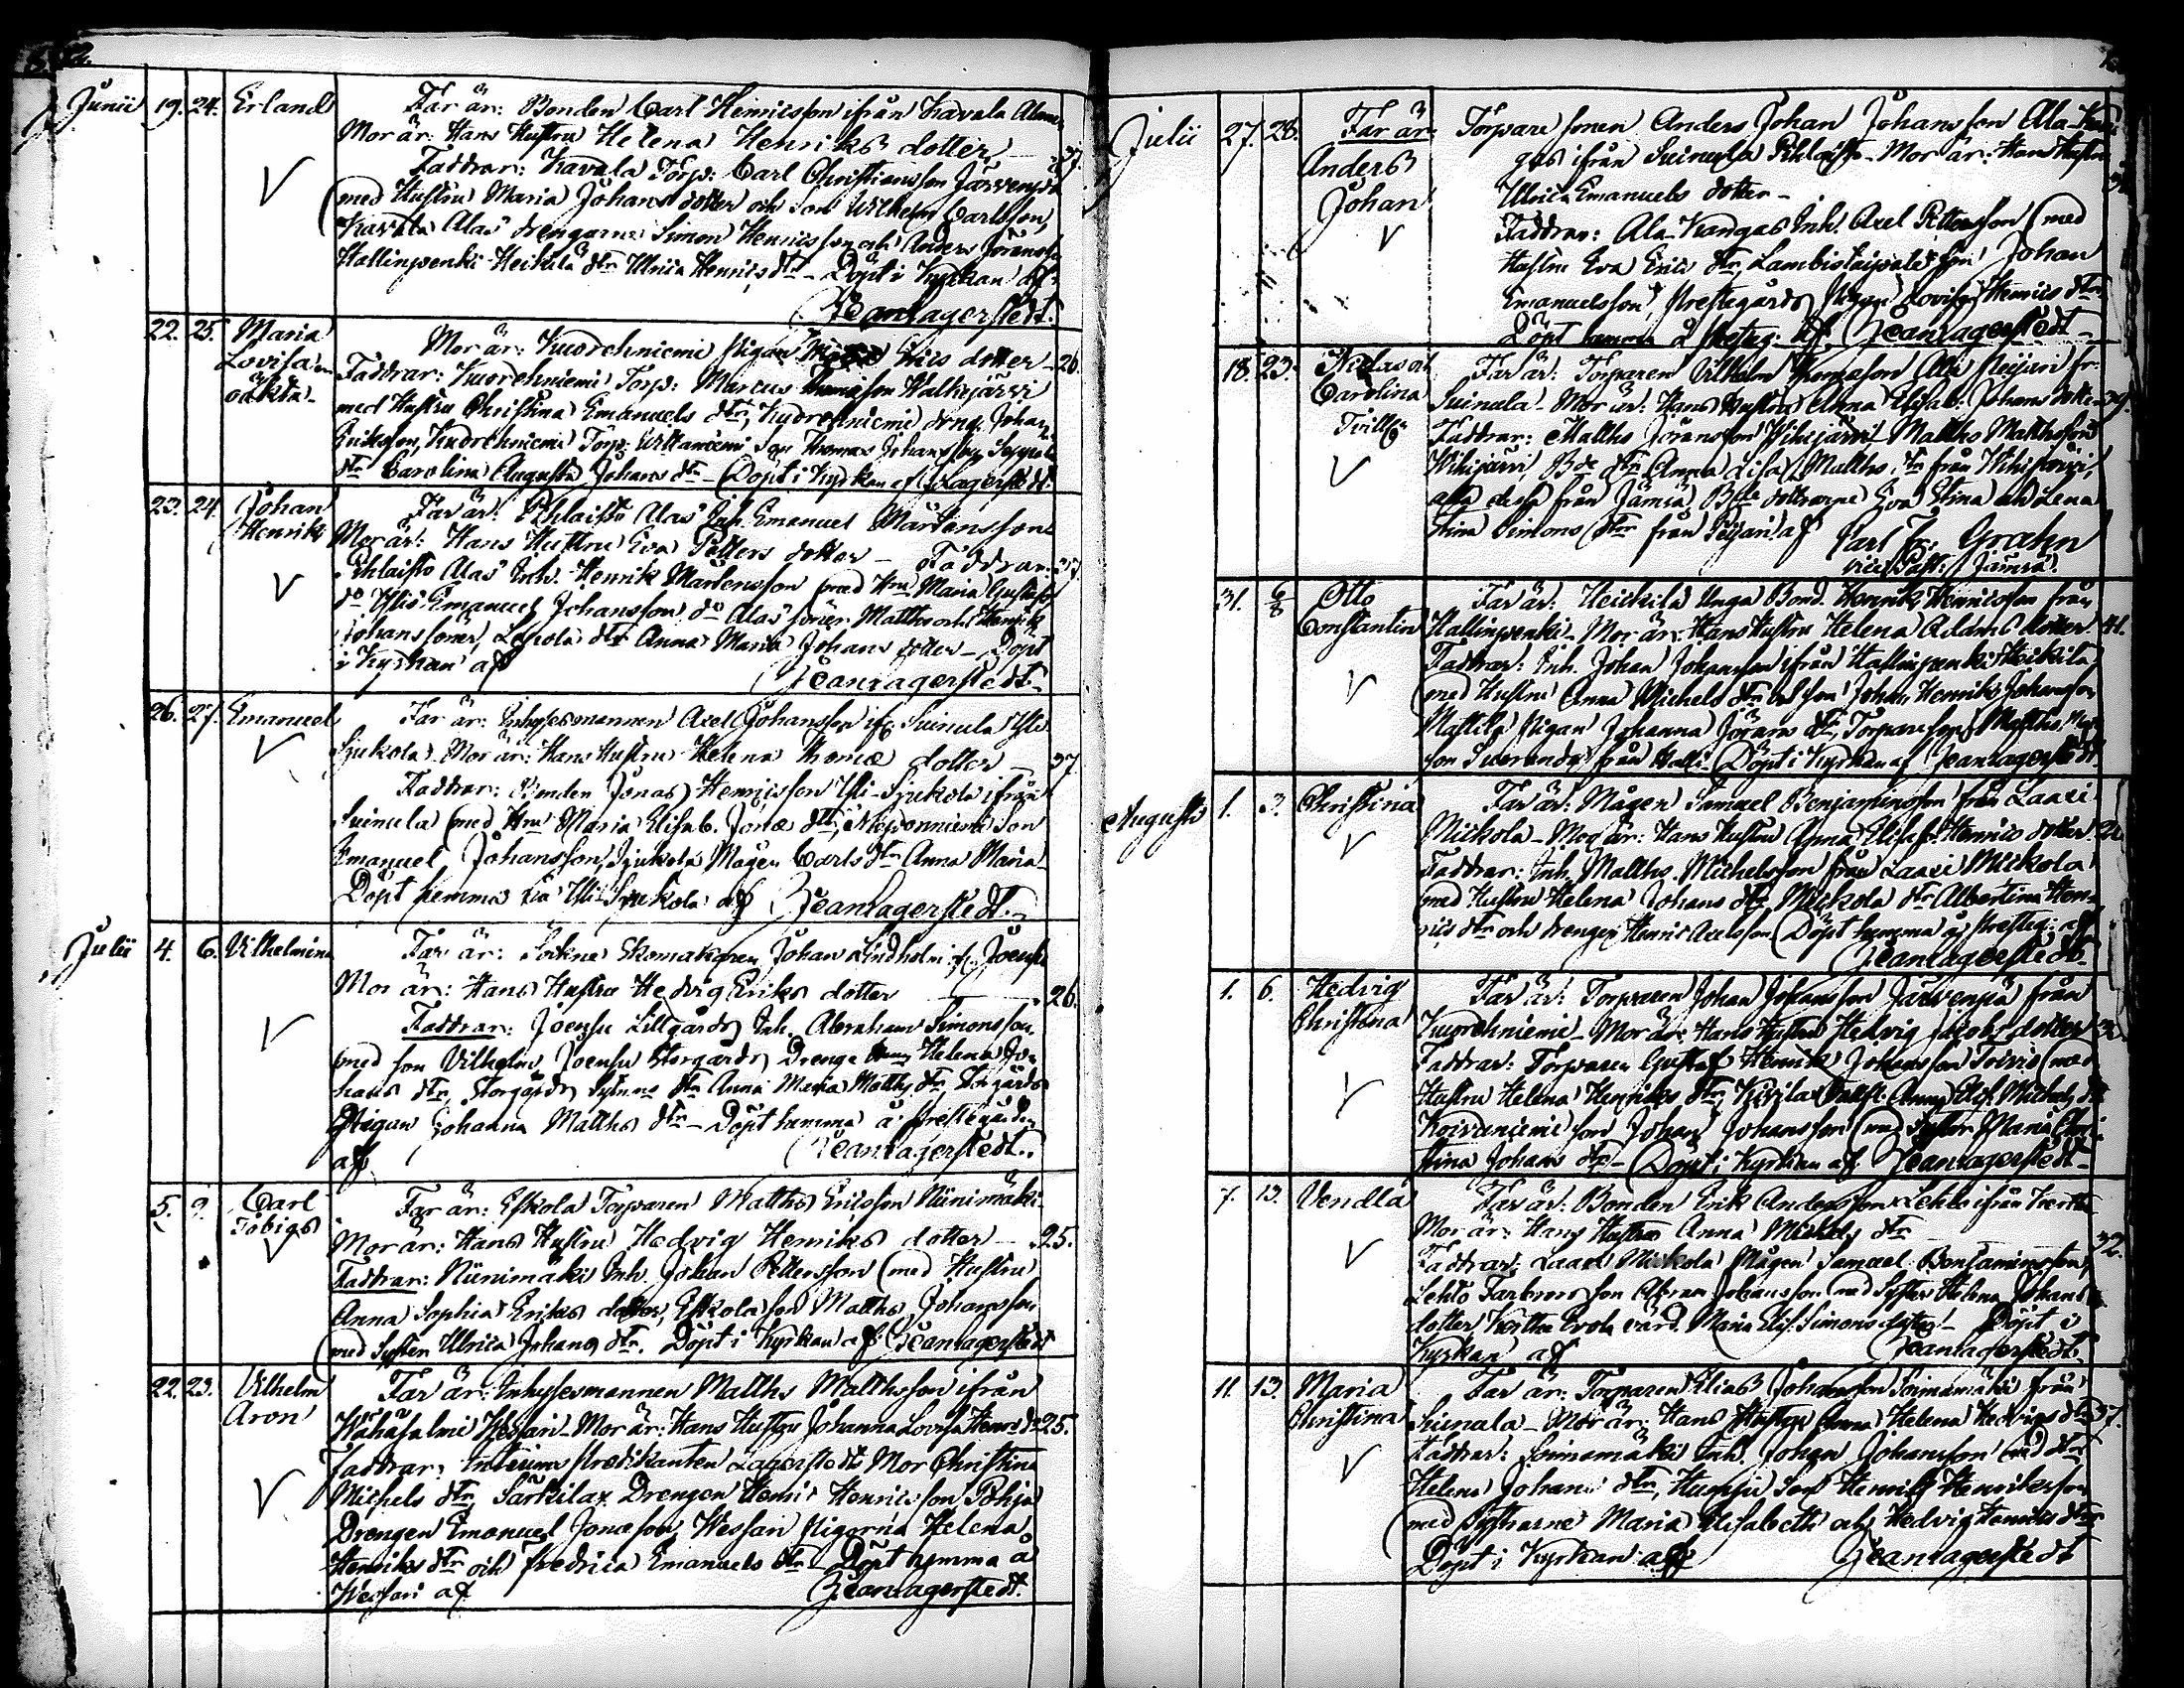 Junii 19. 24. Erland Far är: Bonden Carl Henricsson ifrån Kavala
Mor är: Hans Hustru Helena Henriks dotter 37.
Faddrar: Kavala Torp: Carl Christiansson Järvenpää
med Hustru Maria Johans dotter och son Wilhelm Carlsson,
Kavala Alas drengarne Simon Henricsson och Anders
Hallinpenki Heikilä dtr Ulrica Henrics dtr - Döpt i Kyrkan af
Jean Lagerstedt.
22. 25. Maria Lovisa oäkta Mor är: Kuorehniemi Pigan Erics dotter - 26.
Faddrar: Kuorehniemi Torp: Marcus Thomasson
med Hustru Christina Emanuels dtr, Kuorehniemi dreng. Johan
Eriksson, Kuorehniemi Torp: son Thomas Johansson,
dtr Carolina Augusta Johans dtr - Döpt i Kyrkan af Lagerstedt
23. 24. Johan Henrik Far är: Pihlaisto Alas Inh. Emanuel Mårtensson
Mor är: Hans Hustru Eva Petters dotter - Faddrar: 37.
Pihlaisto Alas Inh. Henrik Mårtensson med Hru Maria
do Ylis Emanuel Johansson do Alas söner Matths och Henrik
Johanssöner, dtr Anna Maria Johans dotter - Döpt
i Kyrkan af Jean Lagerstedt
26. 27. Emanuel Far är: Inhysesmannen Axel Johansson ifr. Suinula Yli
Sjukola. Mor är: Hans Hustru Helena Thomæ dotter - 37.
Faddrar: Bonden Jonas Henricsson Yli-Sjukola ifrån
Suinula med Hru Maria Elisab. Jonæ dtr, son
Emanuel Johansson, Sjukola Mågen Carls dtr Anna Maria
Döpt hemma i Yli Sjukola af Jean Lagerstedt.
Julii 4. 6. Vilhelmina Far är: Sockne Skomakaren Johan Lindholm ifr. Joensu
Mor är: Hans Hustru Hedvig Eriks dotter 26.
Faddrar: Joensu Lillgårds Inh. Abraham Simonsson
med son Vilhelm, Joensu Storgårds Drenge Helena Jo-
hans dtr, Storgårds dtr Anna Maria Matths dtr, Storgårds
Pigan Johanna Matths dtr - Döpt hemma å Prestegården
af Jean Lagerstedt.
5. 9. Carl Tobias Far är: Eskola Torparen Matths Ericsson Niinimäki
Mor är: Hans Hustru Hedvig Henriks dotter - 25.
Faddrar: Niinimäki Inh. Johan Pettersson med Hustru
Anna Sophia Eriks dotter, Eskola son Matths Johansson
med Syster Ulrica Johans dtr. Döpt i Kyrkan af Jean Lagerstedt
22. 23. Vilhelm Aron Far är: Inhysesmannen Matths Matthsson ifrån
Wähäsalmi Wessari - Mor är: Hans Hustru Johanna Lovisa 25.
Faddrar: Interims Predikanten Lagerstedts Mor Christina
Michels dtr, Särkilax Drengen Henric Henricsson, Pohja
Drengen Emanuel Jonæson, Wessari Pigorna Helena
Henriks dtr och Fredrica Emanuels dtr - Döpt hemma å
Wessari af Jean Lagerstedt.
Julii 27. 28. Anders Johan Far är Torpare sonen Anders Johan Johansson Ala-Kan
gas ifrån Suinula Pihlaisto - Mor är: Hans Hustru
Ulrica Emanuels dotter -
Faddrar: Ala-Kangas Inh. Axel Pettersson med
Hustru Eva Erics dtr, son Johan
Emanuelsson, Prestegårds Pigan Lovisa Henrics dtr
Döpt hemma å Presteg. af Jean Lagerstedt
18. 23. Niclas och Carolina Tvilling Far är: Torparen Vilhelm Thomason Peijari fr.
Suinula - Mor är: Hans Hustru Anna Elisab. Johans dotter 39.
Faddrar: Matths Jöransson Vihijärvi - Matths Matthsson
Vihijärvi, Bde dtr Anna Lisa Matths dtr från Vihijärvi,
alla dessa från Jämsä Bde dottrarne Eva Stina och Lena
Stina Simons dtr från Peijari af Carl Fr. Grahn
vice Past: i Jämsä.
31. 6/8 Otto Constantin Far är: Heickilä Unga Bond. Henrik Henricsson från
Hallinpenki - Mor är: Hans Hustru Helena Adams dotter 41.
Faddrar: Inh. Johan Johansson ifrån Hallinpenki Heikilä
med Hustru Anna Michels dtr och son Johan Henrik Johansson,
Mattila Pigan Johanna Jörans dtr, Torpareson Matths
son från Halli - Döpt i Kyrkan af Jean Lagerstedt
Augusti 1. 3. Christina Far är: Mågen Samuel Benjaminsson från Laasi
Mickola - Mor är: Hans Hustru Anna Elisab. Henrics dotter
Faddrar: Inh. Matths Michelsson från Laasi Mickola
med Hustru Helena Johans dtr, Mickola dtr Albertina Hen-
rics dtr och drengen Henric Axelsson Döpt hemma å Presteg: af
Jean Lagerstedt
1. 6. Hedvig Christina Far är: Torparen Johan Johansson Järvenpää från
Kuorehniemi - Mor är: Hans Hustru Hedvig Jacobs dotter
Faddrar: Torparen Gustaf Henrik Johansson med
Hustru Helena Henriks dtr, Anna Elis. Michels dtr
Koivuniemi son Johan Johansson med Syster Maria Chri-
stina Johans dtr - Döpt i Kyrkan af Jean Lagerstedt
7. 13. Vendla Far är: Bonden Erik Andersson Lehto ifrån
Mor är: Hans Hustru Anna Michels dtr 32.
Faddrar: Laasi Mickola Mågen Samuel Benjaminsson,
Lehto Farbrors son Abram Johansson med Syster Helena Johans
dotter, Maria Elis. Simons dotter - Döpt i
Kyrkan af Jean Lagerstedt.
11. 13. Maria Christina Far är: Torparen Elias Johansson Soinimäki från
Suinula - Mor är: Hans Hustru Anna Helena Hedvigs dtr 37.
Faddrar: Soinimäki Inh. Johan Johansson med dtr
Helena Johans dtr, son Henrik Henriksson
med Systrarne Maria Elisabeth och Hedvig Henriks dtr
Döpt i Kyrkan af Jean Lagerstedt